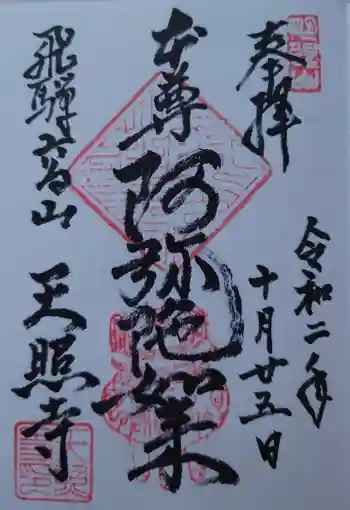 奉拝
令和二年
十月廿五日
本尊阿弥陀如来
飛騨高山
天照寺